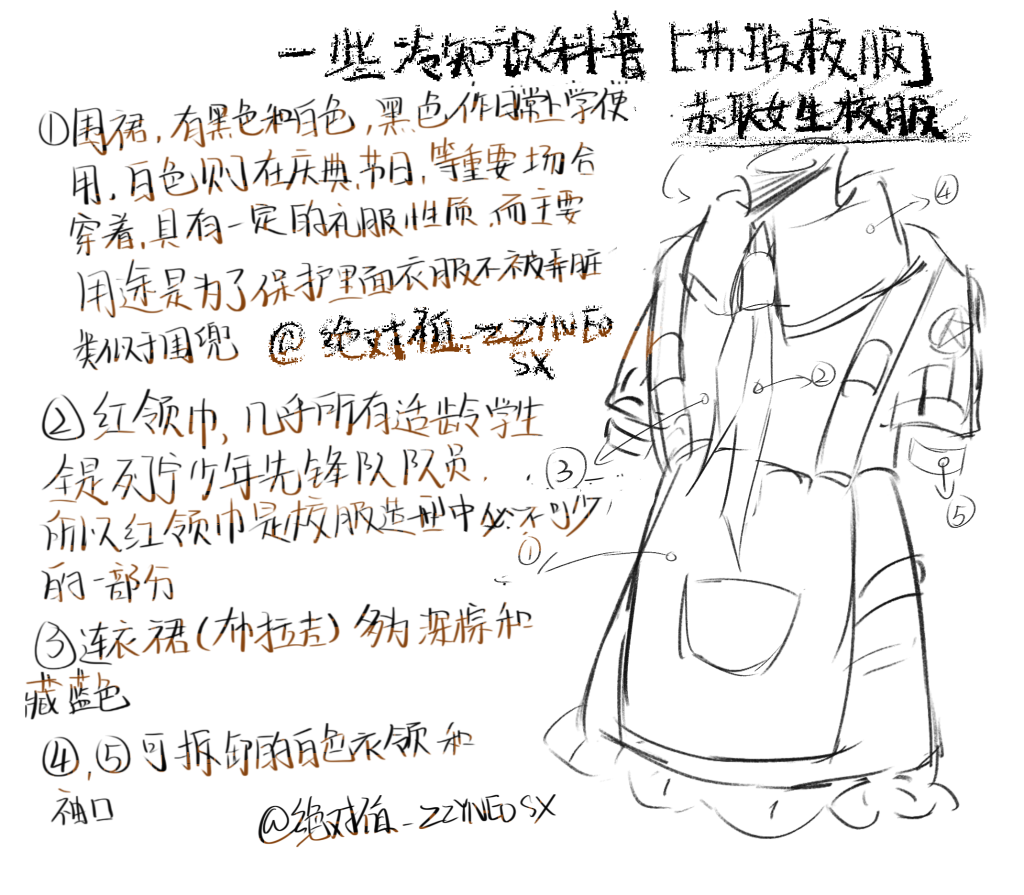 一些冷知识科普[苏联校服]
苏联女生校服
①围裙，有黑色和白色，黑色作日常上学使
用，白色则在庆典，节日，等重要场合
穿着，具有一定的礼服性质，而主要
用途是为了保护里面衣服不被弄脏
类似于围兜 @绝对值_ZZYNEO
SX
②红领巾，几乎所有适龄学生
全是列宁少年先锋队队员，
所以红领巾是校服造型中必不可少
的一部分
③连衣裙(布拉吉)多为深棕和
藏蓝色
④，⑤可拆卸的白色衣领和
袖口
@绝对值_ZZYNEOSX
④
②
③
⑤
①